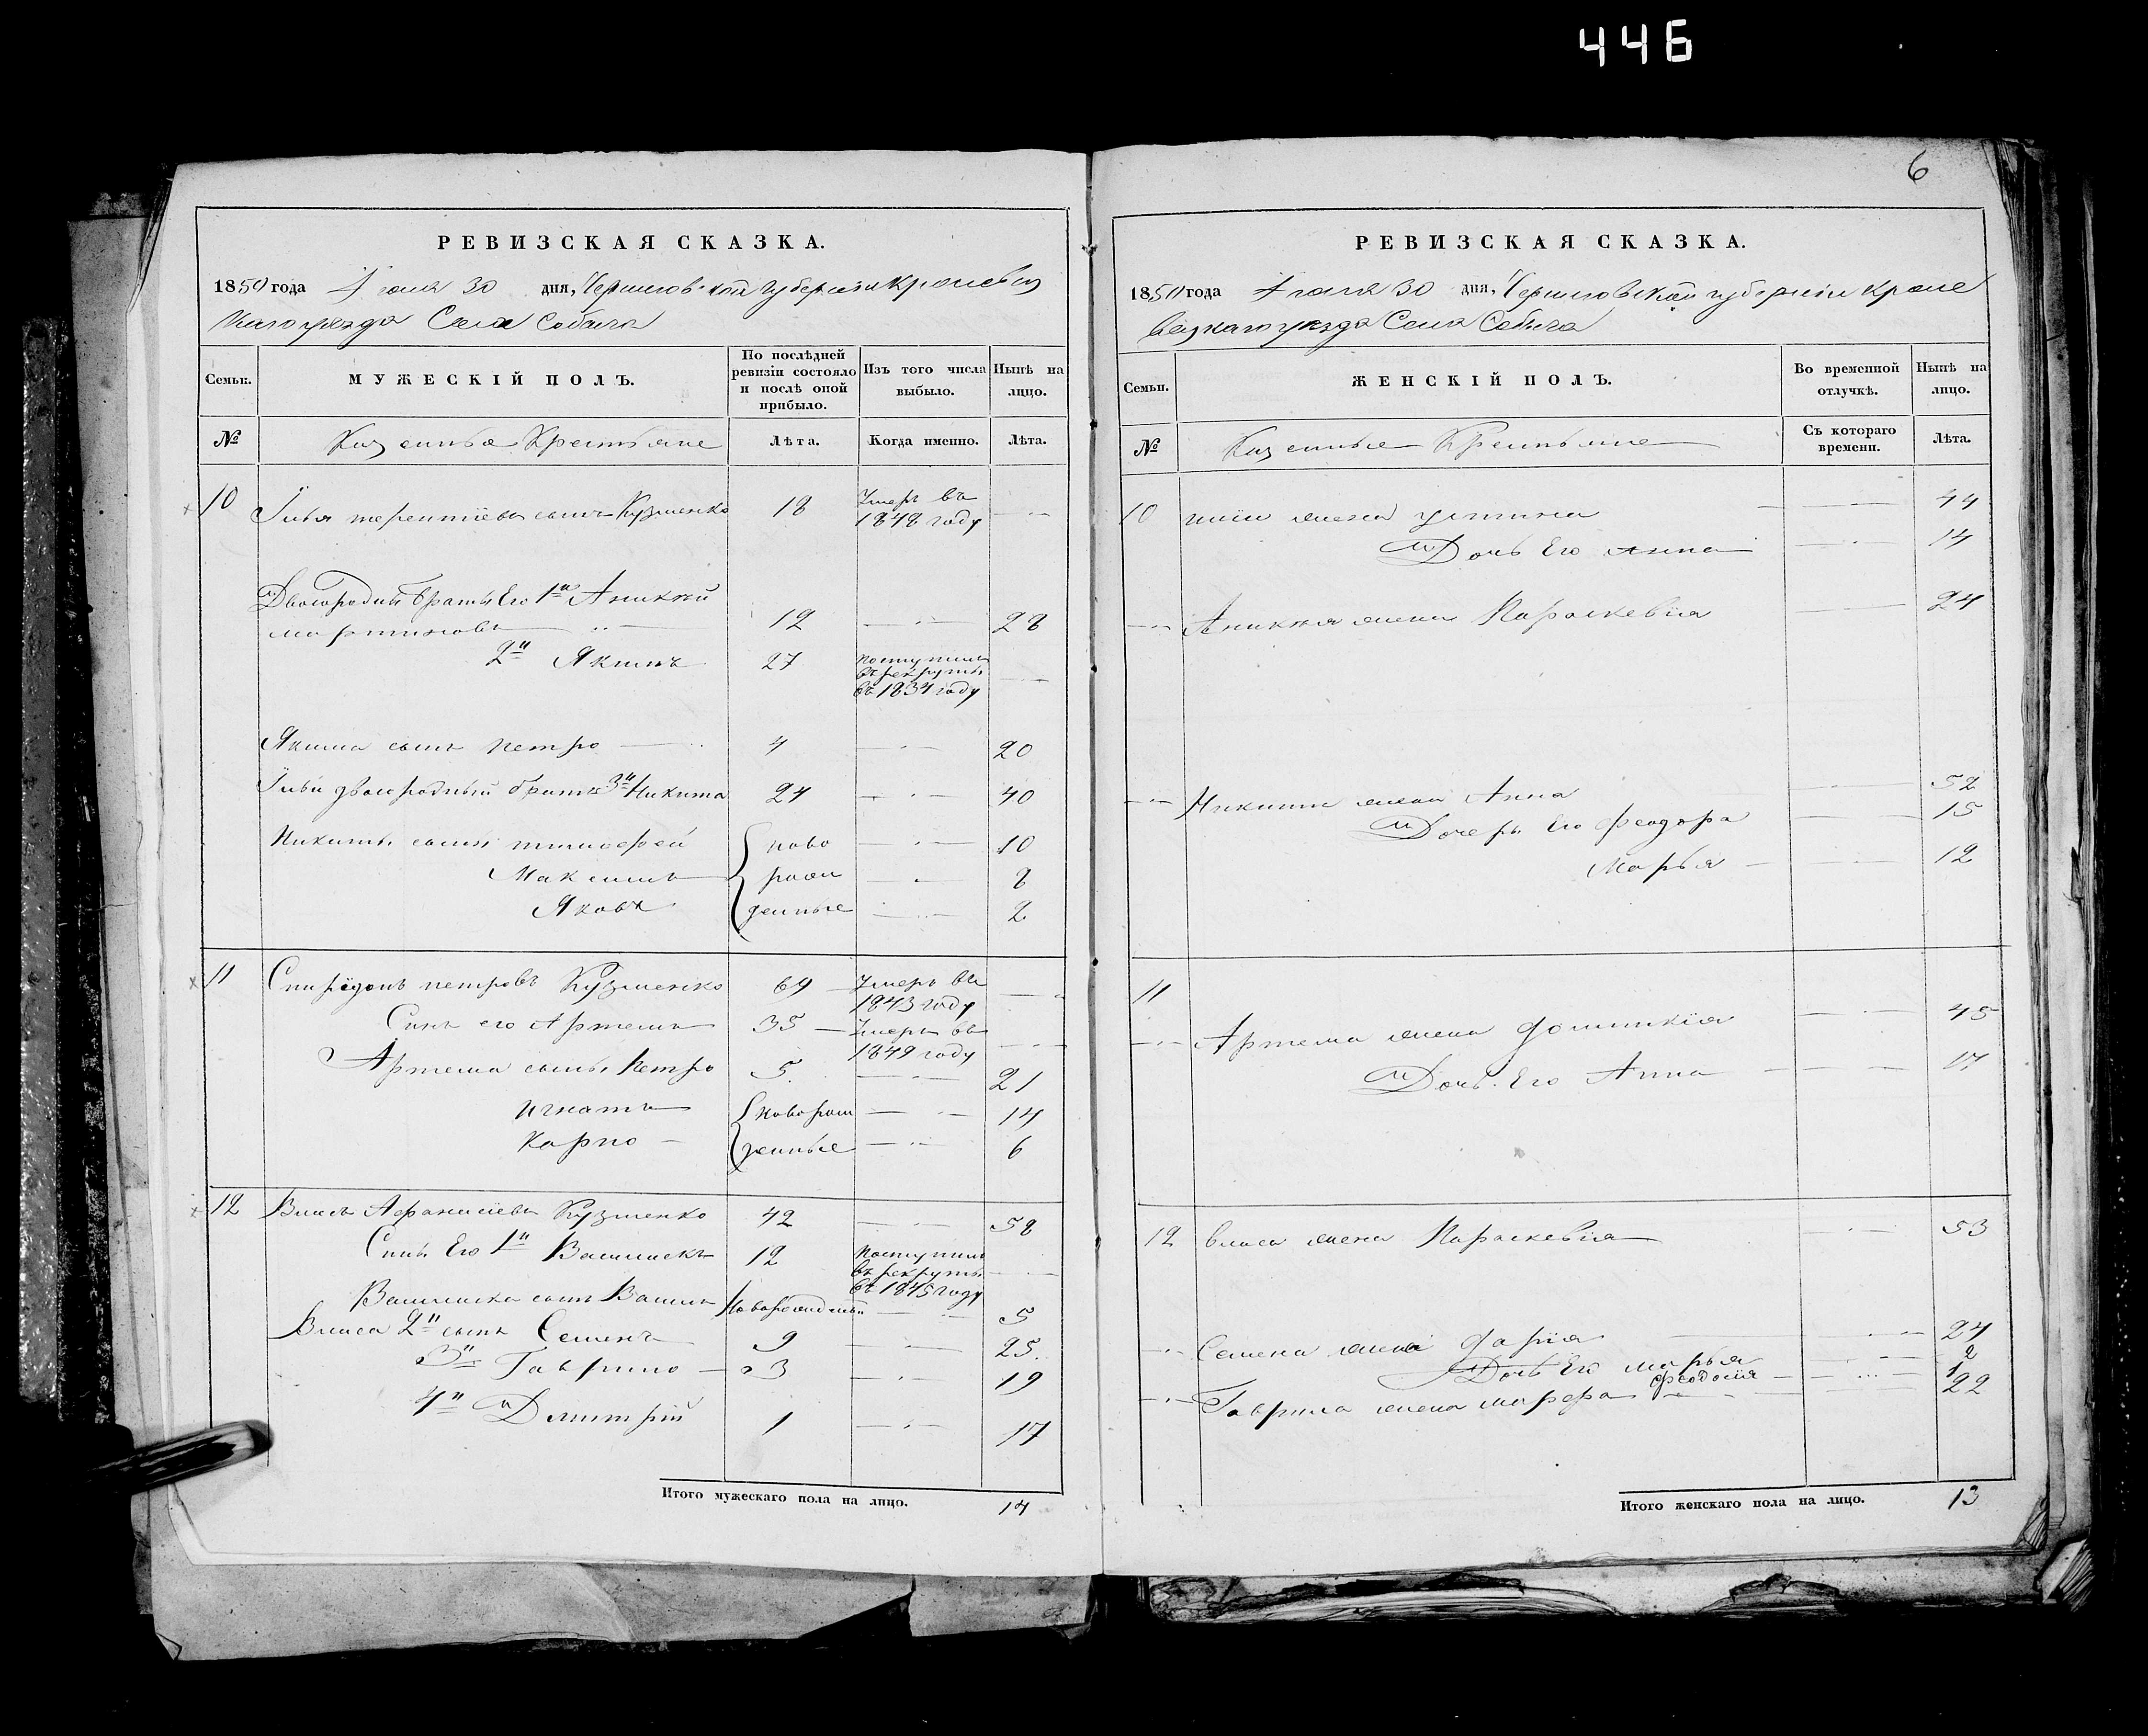 446
6
РЕВИЗСКАЯ СКАЗКА.
1850 года 30 дня, Черниговской губернии Кролевец
каго уезда Села Собича
Семьи.
МУЖЕСКІЙ ПОЛЪ.
По послѣдней ревизіи состояло и послѣ оной прибыло.
Изъ того числа выбыло.
Нынѣ на лицо.
№
Казенные Крестьяне
Лѣта.
Когда именно.
Лѣта.
10 Илья терентіевъ сынъ Кузменко 18 Умеръ въ
1848 году
Двоюродныи братья Его 1й Аникѣй
мартиновъ 12 28
2й Якимъ 27 поступилъ
въ рекруты
въ 1834 году
Якима сынъ петро 4 20
Ильи двоюродный братъ 3й Никита 24 40
Никиты сыны тимофей ново 10
Максимъ рож 8
Яковъ денные 2
11 Спиридонъ петровъ Кузменко 69 Умеръ въ
1843 году
Сынъ его Артемъ 35 Умеръ въ
1849 году
Артема сынъ Петро 5. 21
игнатъ новорож 14
карпо денные 6
12 Власъ Афанасіевъ Кузменко 42 58
Сынъ Его 1й Василискъ 12 Поступилъ
въ рекруты
въ 1845 году
Василиска сынъ Васил новорожденный 5
Власа 2й сынъ Семенъ 9 25.
3й Гаврило 3 19
4й Дмитрій 1 17
Итого мужескаго пола на лицо. 14
РЕВИЗСКАЯ СКАЗКА.
1850 года 30 дня, Черниговской губерніи кроле
вецкаго уезда Села Собича
Семьи.
ЖЕНСКІЙ ПОЛЪ.
Во временной отлучкѣ.
Нынѣ на лицо.
№
Казенные Крестьяне
Съ котораго времени.
Лѣта.
10 илии жена устина 44
Дочь Его анна 14
Аникея жена Параскевія 24
Никиты жена Анна 52
Дочеры Его феодора 15
Марья 12
11
Артема жена домникія 45
Дочь Его Анна 17
12 власа жена Параскевія 53
Семена жена дарія 24
Дочь Его марья 2
феодосія 1
Гаврила жена марфа 22
Итого женскаго пола на лицо. 13